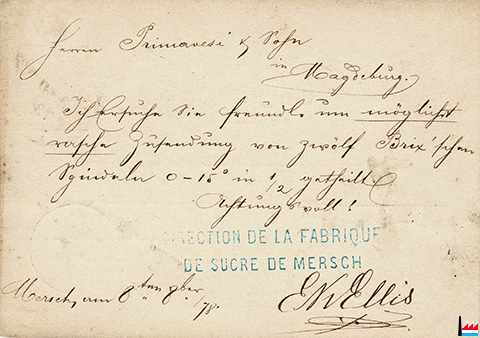 Herren Primavesi & Sohn
in
Magdeburg.
Ich ersuche Sie freundl. um möglichst
rasche Zusendung von zwölf Brix'schen
Spindeln 0-15° in 1/2 getheilt.
Achtungsvoll!
DIRECTION DE LA FABRIQUE
DE SUCRE DE MERSCH
Mersch, am 8ten 8ber 78.
Ellis